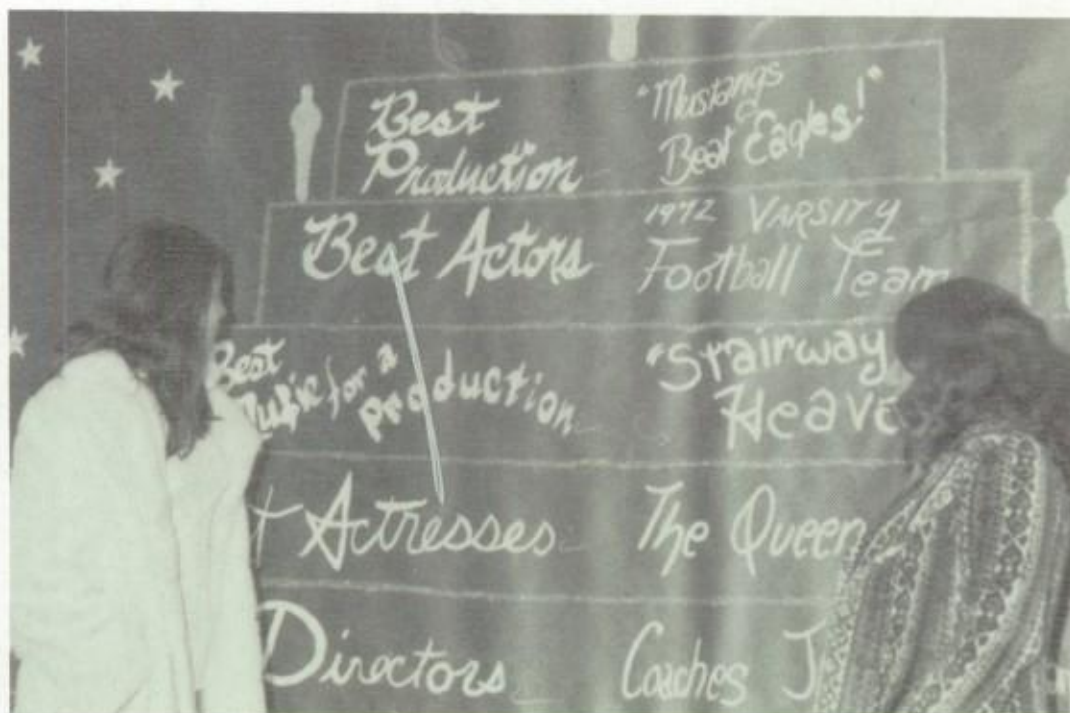 Best
Production
"Mustangs
Beat Eagles!"
Best Actors
1972 VARSITY
Football Team
Best
Music for a
Production
"Stairway
Heave
t Actresses
The Queen
Directors
Coaches